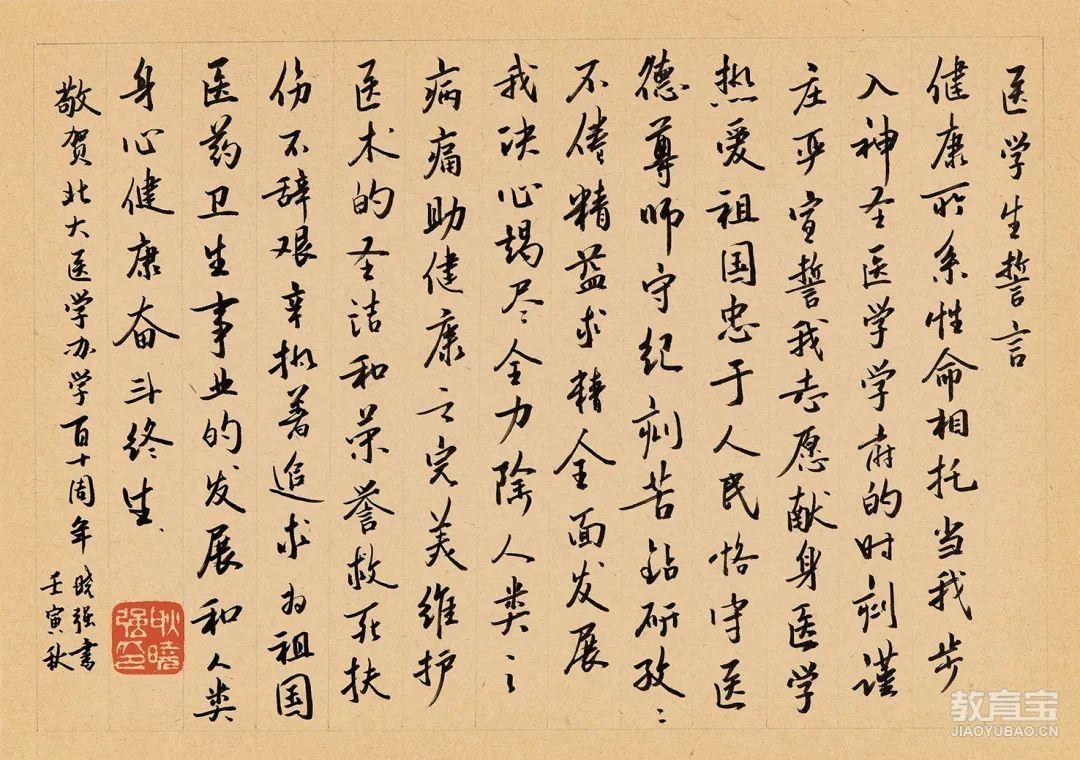 医学生誓言
健康所系性命相托当我步
入神圣医学学府的时刻谨
庄严宣誓我志愿献身医学
热爱祖国忠于人民恪守医
德尊师守纪刻苦钻研孜〻
不倦精益求精全面发展
我决心竭尽全力除人类之
病痛助健康之完美维护
医术的圣洁和荣誉救死扶
伤不辞艰辛执着追求为祖国
医药卫生事业的发展和人类
身心健康奋斗终生.
敬贺北大医学办学百十周年
晓强书
壬寅秋
耿曉
强印
教育宝
JIAOYUBAO.CN